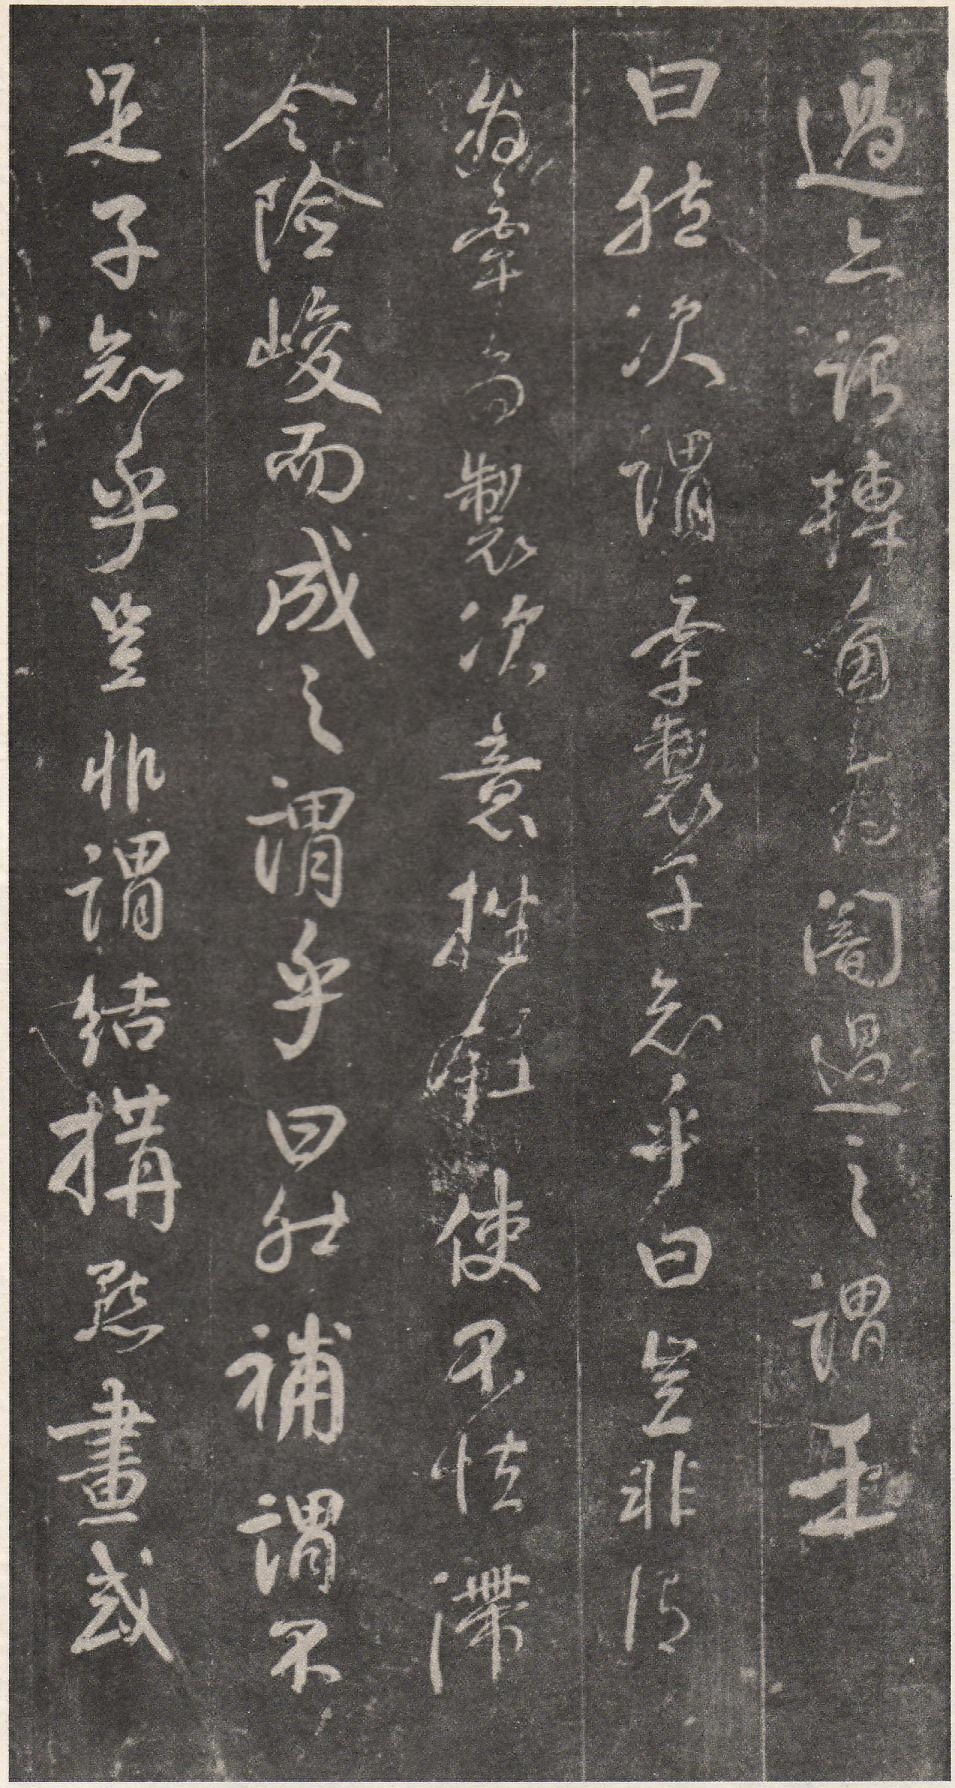 過亦謂轉角為闇過之謂王
曰然次謂牽製子知乎曰豈非謂
為牽為製次意挫鋒使不怯滯
令險峻而成之謂乎曰然補謂不
足子知乎豈非謂結構點畫或